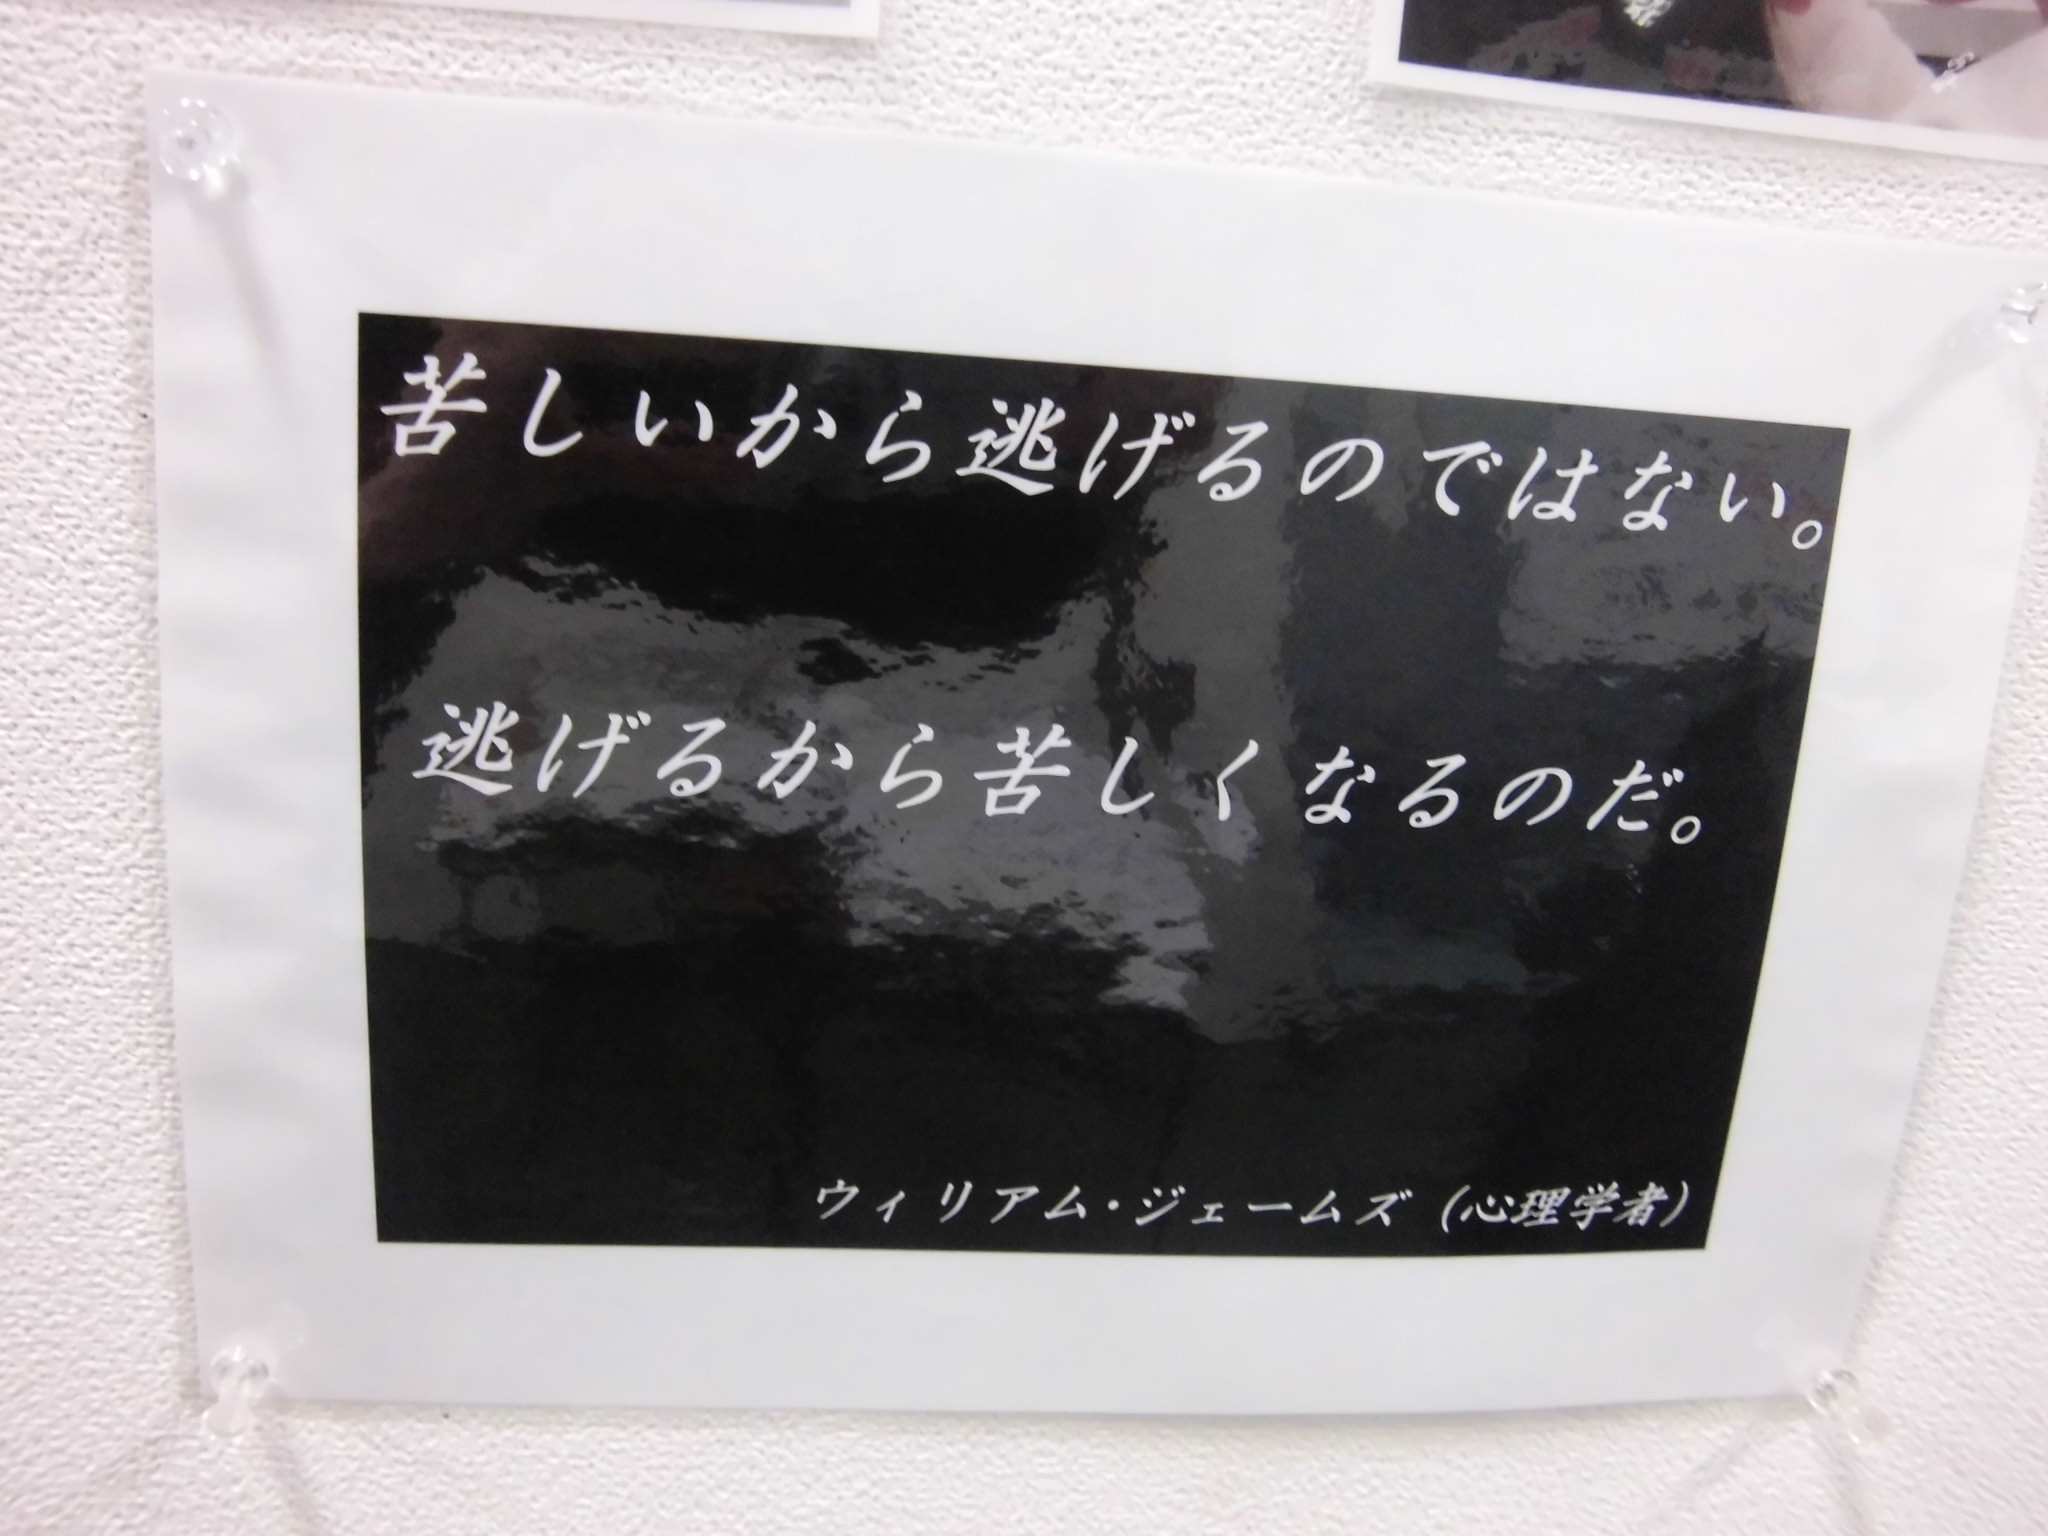 苦しいから逃げるのではない。
逃げるから苦しくなるのだ。
ウィリアム・ジェームズ (心理学者)